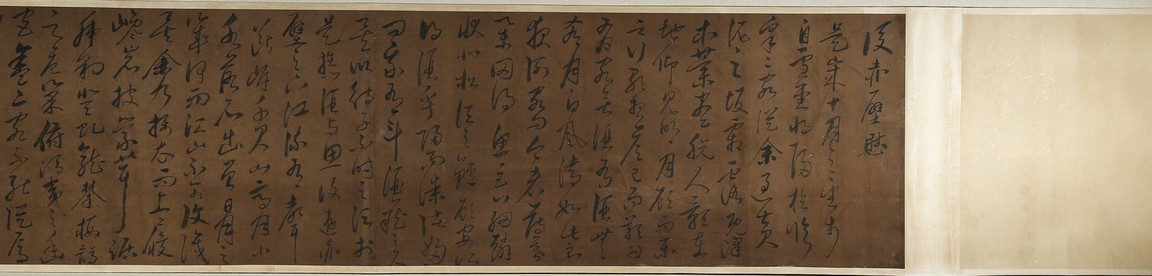 後赤壁賦
是歲十月之望步
自雪堂將歸於臨
皋二客從余過黃
泥之坂霜露既降
木葉盡脫人影在
地仰見明月顧而樂
之行歌相答已而歎曰
有客無酒有酒無
肴月白風清如此良
夜何客曰今者薄暮
舉網得魚巨口細鱗
狀如松江之鱸顧安所
得酒乎歸而謀諸婦
曰我有斗酒藏之久
矣以待子不時之須於
是攜酒與魚復遊赤
壁之下江流有聲
斷岸千尺山高月小
水落石出曾日月之
幾何而江山不可復識
矣余乃攝衣而上履
巉岩披蒙茸踞
虎豹登虬龍攀棲鶻
之危巢俯馮夷之幽
宮蓋二客不能從焉